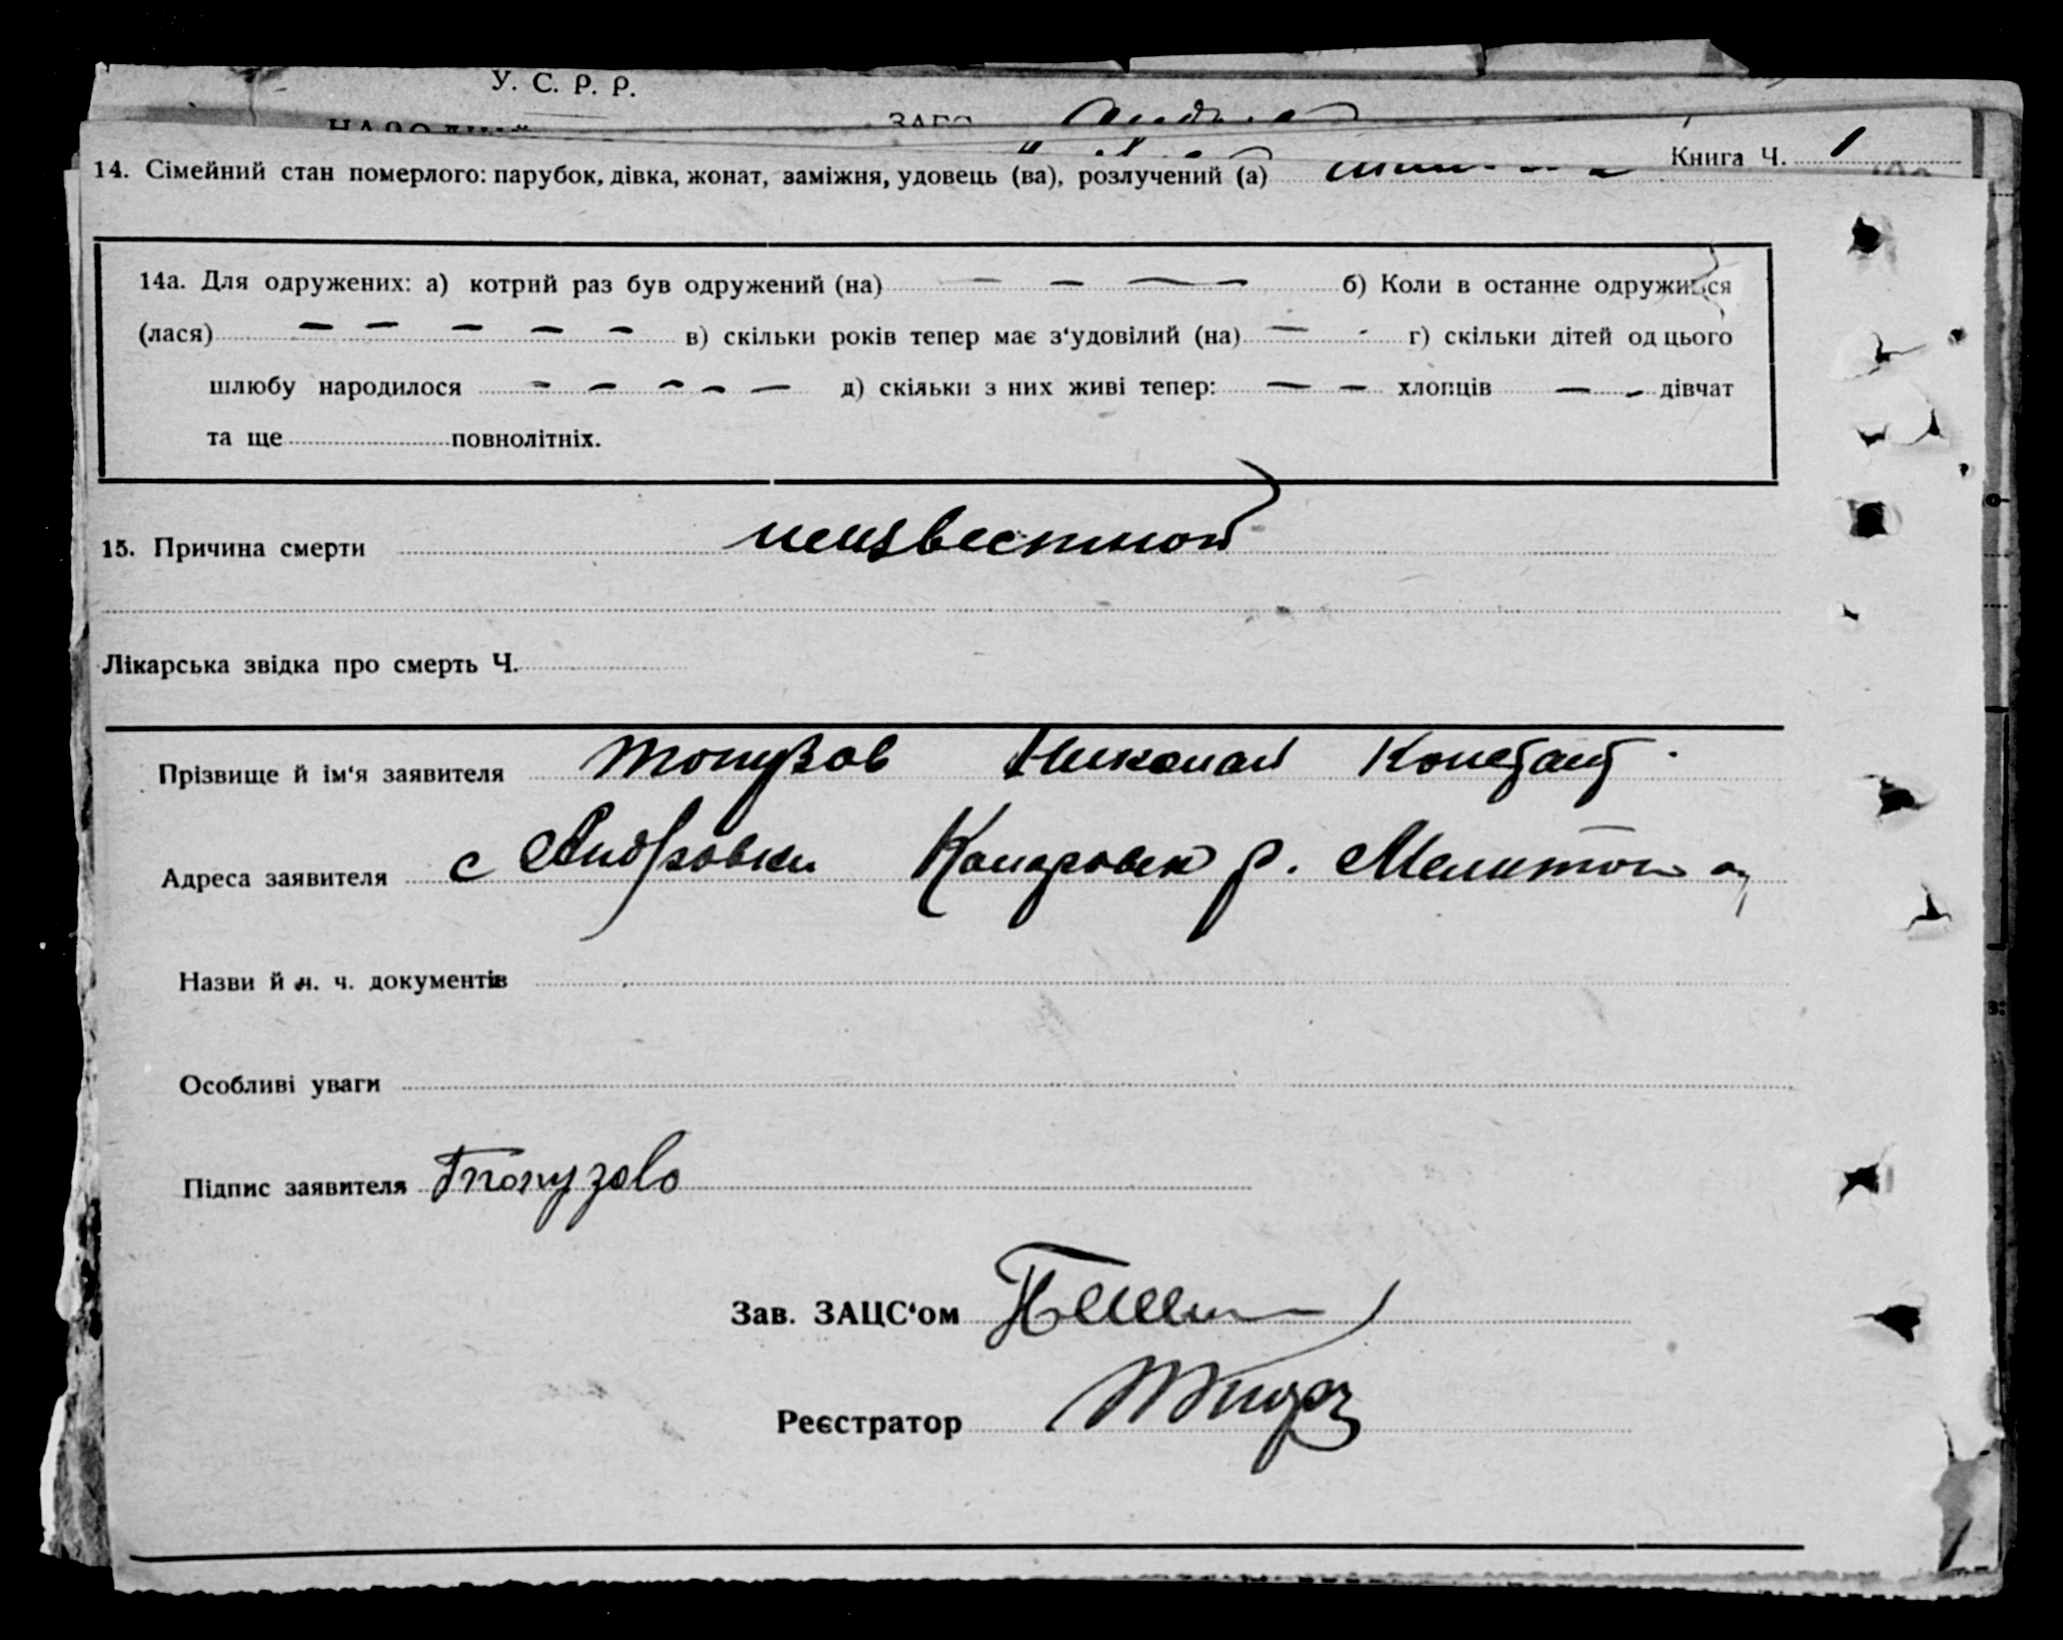 У. С. Р. Р.
Книга Ч. 1
14. Сімейний стан померлого: парубок, дівка, жонат, заміжня, удовець (ва), розлучений (а)
14а. Для одружених: а) котрий раз був одружений (на) — — — б) Коли в останнє одружився
(лася) — — — — — в) скільки років тепер має з‘удовілий (на) — - г) скільки дітей од цього
шлюбу народилося - — - - — д) скільки з них живі тепер: — — хлопців — - дівчат
та ще повнолітніх.
15. Причина смерти неизвестной
Лікарська звідка про смерть Ч.
Прізвище й ім‘я заявителя Топузов Николай Констант.
Адреса заявителя с Андровки р. Мелитоп
Назви й ч. ч. документів
Особливі уваги
Підпис заявителя Топузов
Зав. ЗАЦС‘ом
Реєстратор